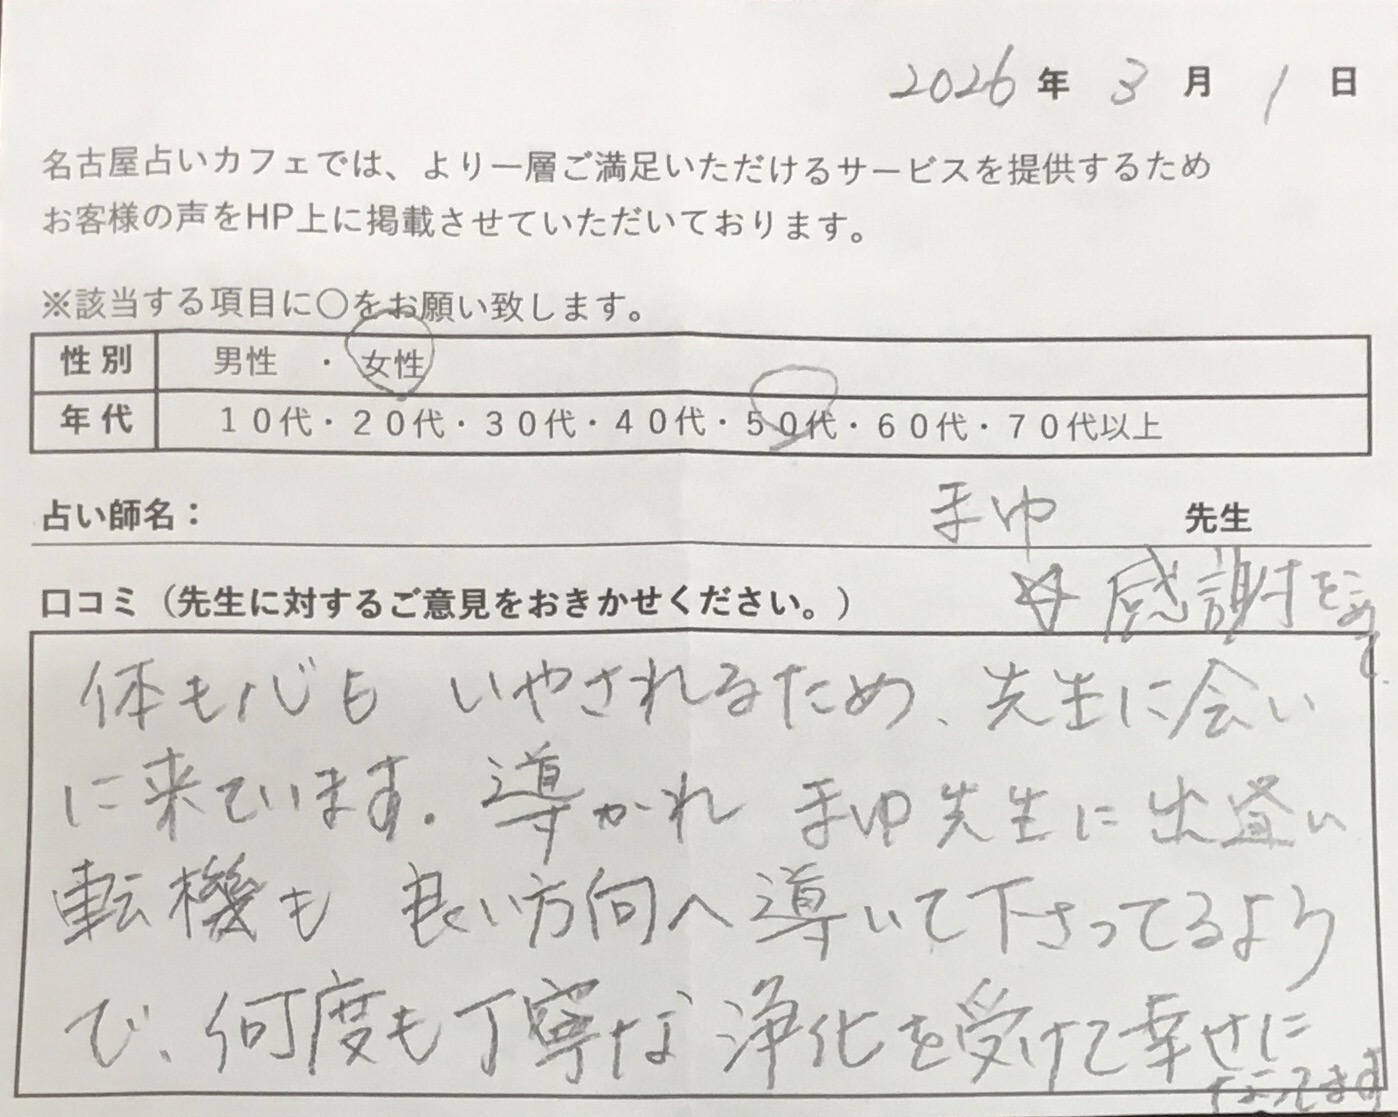 2026年 3月 1日
名古屋占いカフェでは、より一層ご満足いただけるサービスを提供するため
お客様の声をHP上に掲載させていただいております。
※該当する項目に〇をお願い致します。
性別 男性 ・ 女性
年代 10代・20代・30代・40代・50代・60代・70代以上
占い師名： まゆ 先生
口コミ（先生に対するご意見をおきかせください。）
☆感謝をこめて。
体も心も いやされるため、先生に会い
に来ています。導かれ まゆ先生に出逢い
転機も 良い方向へ導いて下さってるよう
で、何度も丁寧な浄化を受けて幸せに
なってます